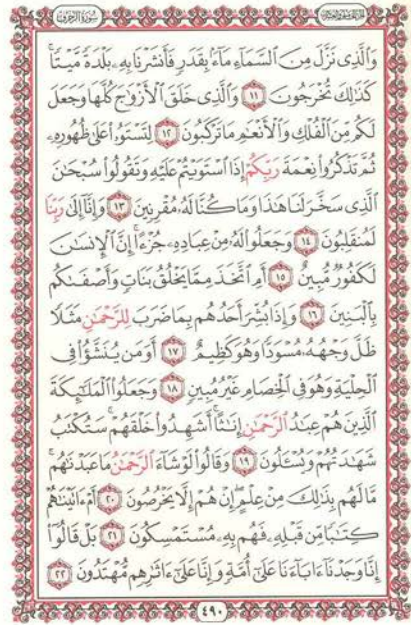 سُورَةُ الزُّخْرُفِ
وَٱلَّذِى نَزَّلَ مِنَ ٱلسَّمَآءِ مَآءًۢ بِقَدَرٍ فَأَنشَرْنَا بِهِۦ بَلْدَةً مَّيْتًا ۚ
كَذَٰلِكَ تُخْرَجُونَ ١١ وَٱلَّذِى خَلَقَ ٱلْأَزْوَٰجَ كُلَّهَا وَجَعَلَ
لَكُم مِّنَ ٱلْفُلْكِ وَٱلْأَنْعَٰمِ مَا تَرْكَبُونَ ١٢ لِتَسْتَوُۥا۟ عَلَىٰ ظُهُورِهِۦ
ثُمَّ تَذْكُرُوا۟ نِعْمَةَ رَبِّكُمْ إِذَا ٱسْتَوَيْتُمْ عَلَيْهِ وَتَقُولُوا۟ سُبْحَٰنَ
ٱلَّذِى سَخَّرَ لَنَا هَٰذَا وَمَا كُنَّا لَهُۥ مُقْرِنِينَ ١٣ وَإِنَّآ إِلَىٰ رَبِّنَا
لَمُنقَلِبُونَ ١٤ وَجَعَلُوا۟ لَهُۥ مِنْ عِبَادِهِۦ جُزْءًا ۚ إِنَّ ٱلْإِنسَٰنَ
لَكَفُورٌ مُّبِينٌ ١٥ أَمِ ٱتَّخَذَ مِمَّا يَخْلُقُ بَنَاتٍ وَأَصْفَىٰكُم
بِٱلْبَنِينَ ١٦ وَإِذَا بُشِّرَ أَحَدُهُم بِمَا ضَرَبَ لِلرَّحْمَٰنِ مَثَلًا
ظَلَّ وَجْهُهُۥ مُسْوَدًّا وَهُوَ كَظِيمٌ ١٧ أَوَمَن يُنَشَّؤُا۟ فِى
ٱلْحِلْيَةِ وَهُوَ فِى ٱلْخِصَامِ غَيْرُ مُبِينٍ ١٨ وَجَعَلُوا۟ ٱلْمَلَٰٓئِكَةَ
ٱلَّذِينَ هُمْ عِبَٰدُ ٱلرَّحْمَٰنِ إِنَٰثًا ۚ أَشَهِدُوا۟ خَلْقَهُمْ ۚ سَتُكْتَبُ
شَهَٰدَتُهُمْ وَيُسْـَٔلُونَ ١٩ وَقَالُوا۟ لَوْ شَآءَ ٱلرَّحْمَٰنُ مَا عَبَدْنَٰهُم ۗ
مَّا لَهُم بِذَٰلِكَ مِنْ عِلْمٍ ۖ إِنْ هُمْ إِلَّا يَخْرُصُونَ ٢٠ أَمْ ءَاتَيْنَٰهُمْ
كِتَٰبًا مِّن قَبْلِهِۦ فَهُم بِهِۦ مُسْتَمْسِكُونَ ٢١ بَلْ قَالُوٓا۟
إِنَّا وَجَدْنَآ ءَابَآءَنَا عَلَىٰٓ أُمَّةٍ وَإِنَّا عَلَىٰٓ ءَاثَٰرِهِم مُّهْتَدُونَ ٢٢
٤٩٠